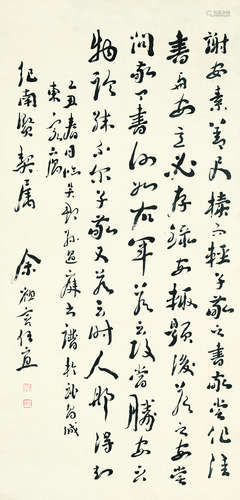 謝安素善尺牘而輕子敬之書敬嘗作佳
書與安必存錄安輒題後答之安嘗
問敬書何如右軍答云故當勝安云
物論殊不尔子敬又答云時人那得知
乙丑春日臨吳郡孫過庭書譜於武昌城
東寓廬
紀南賢契屬
余祖言